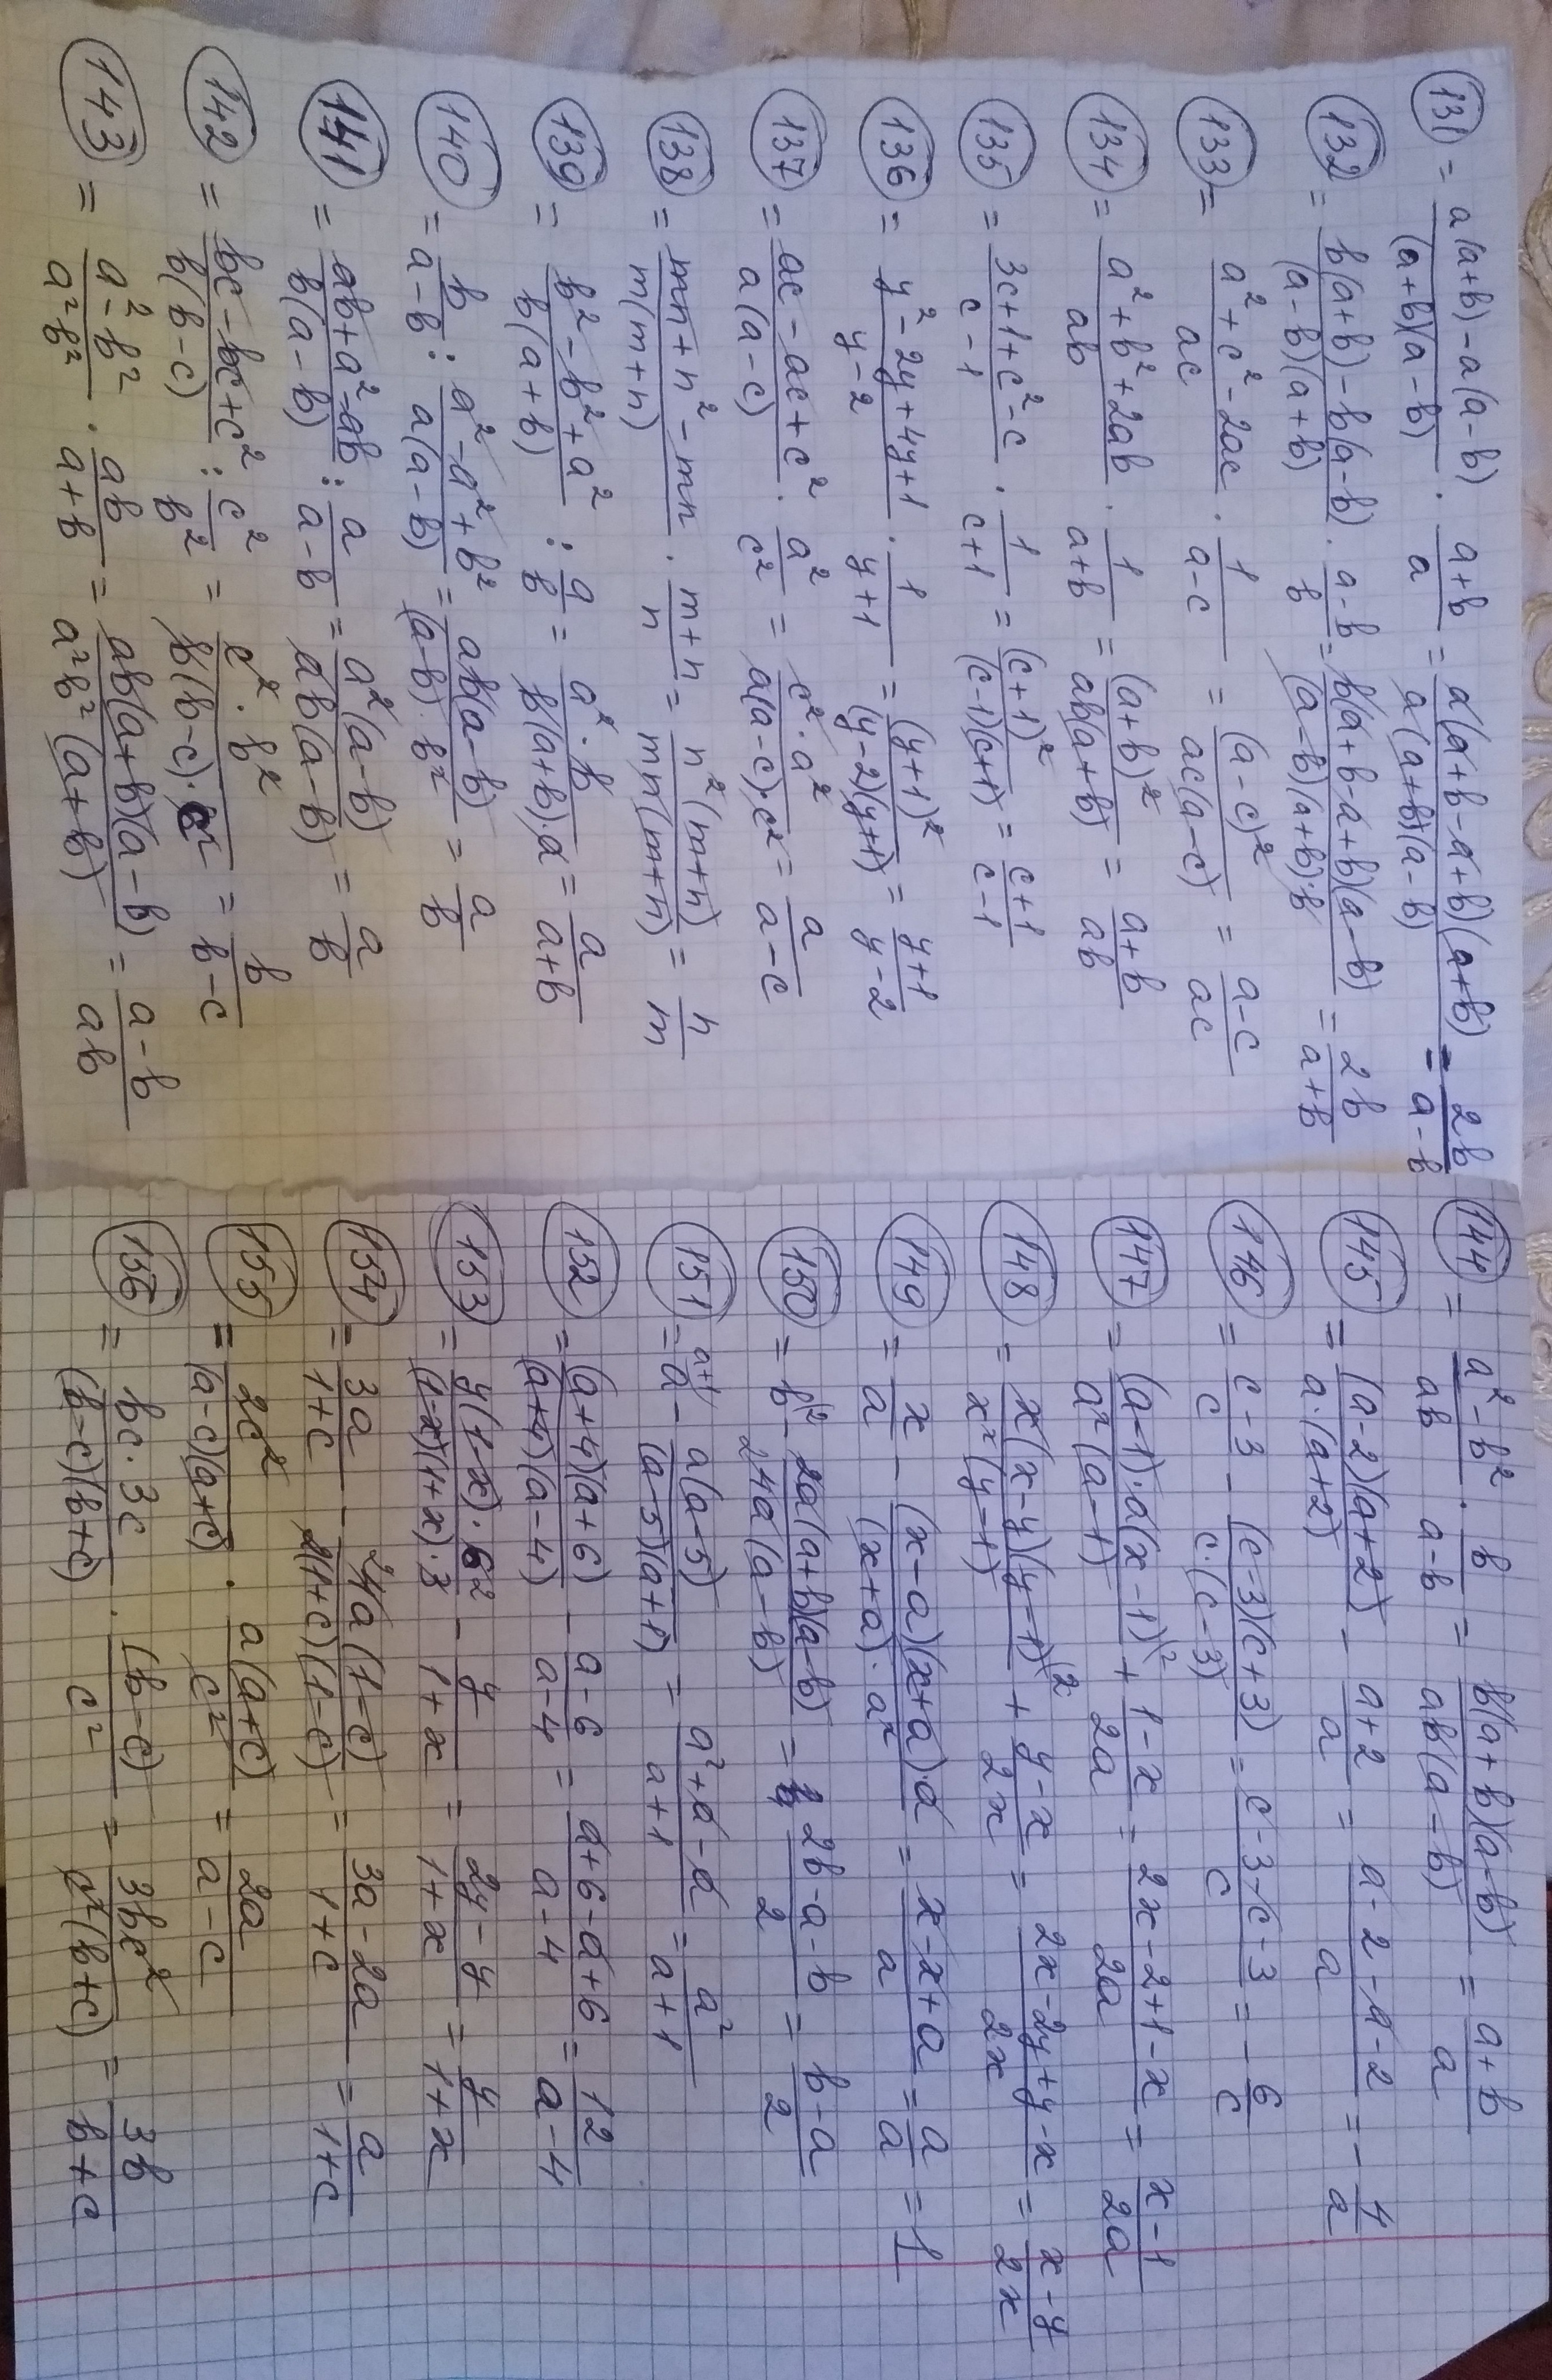 (131) = (a(a+b)-a(a-b))/((a+b)(a-b)) · (a+b)/a = (a(a+b-a+b)(a+b))/(a(a+b)(a-b)) = 2b/(a-b)
(132) = (b(a+b)-b(a-b))/((a-b)(a+b)) · (a-b)/b = (b(a+b-a+b)(a-b))/((a-b)(a+b)·b) = 2b/(a+b)
(133) = (a²+c²-2ac)/(ac) · 1/(a-c) = (a-c)²/(ac(a-c)) = (a-c)/(ac)
(134) = (a²+b²+2ab)/(ab) · 1/(a+b) = (a+b)²/(ab(a+b)) = (a+b)/(ab)
(135) = (3c+1+c²-c)/(c-1) · 1/(c+1) = (c+1)²/((c-1)(c+1)) = (c+1)/(c-1)
(136) = (y²-2y+4y+1)/(y-2) · 1/(y+1) = (y+1)²/((y-2)(y+1)) = (y+1)/(y-2)
(137) = (ac-ac+c²)/(a(a-c)) · a²/c² = (c²·a²)/(a(a-c)·c²) = a/(a-c)
(138) = (mn+n²-mn)/(m(m+n)) · (m+n)/n = (n²(m+n))/(mn(m+n)) = n/m
(139) = (b²-b²+a²)/(b(a+b)) : a/b = (a²·b)/(b(a+b)·a) = a/(a+b)
(140) = b/(a-b) : (a²-a²+b²)/(a(a-b)) = (ab(a-b))/((a-b)·b²) = a/b
(141) = (ab+a²-ab)/(b(a-b)) : a/(a-b) = (a²(a-b))/(ab(a-b)) = a/b
(142) = (bc-bc+c²)/(b(b-c)) : c²/b² = (c²·b²)/(b(b-c)·c²) = b/(b-c)
(143) = (a²-b²)/(a²b²) · ab/(a+b) = (ab(a+b)(a-b))/(a²b²(a+b)) = (a-b)/(ab)
(144) = (a²-b²)/(ab) · b/(a-b) = (b(a+b)(a-b))/(ab(a-b)) = (a+b)/a
(145) = ((a-2)(a+2))/(a·(a+2)) - (a+2)/a = (a-2-a-2)/a = -4/a
(146) = (c-3)/c - ((c-3)(c+3))/(c·(c-3)) = (c-3-c-3)/c = -6/c
(147) = ((a-1)·a(x-1)⁽²)/(a²(a-1)) + (1-x)/(2a) = (2x-2+1-x)/(2a) = (x-1)/(2a)
(148) = (x(x-y)(y-1)⁽²)/(x²(y-1)) + (y-x)/(2x) = (2x-2y+y-x)/(2x) = (x-y)/(2x)
(149) = x/a - ((x-a)(x+a)·a)/((x+a)·a²) = (x-x+a)/a = a/a = 1
(150) = b⁽² - (2a(a+b)(a-b))/(₂4a(a-b)) = (2b-a-b)/2 = (b-a)/2
(151) = a⁽ᵃ⁺¹ - (a(a-5))/((a-5)(a+1)) = (a²+a-a)/(a+1) = a²/(a+1)
(152) = ((a+4)(a+6))/((a+4)(a-4)) - (a-6)/(a-4) = (a+6-a+6)/(a-4) = 12/(a-4)
(153) = (y(1-x)·6²)/((1-x)(1+x)·3) - y/(1+x) = (2y-y)/(1+x) = y/(1+x)
(154) = 3a/(1+c) - (²4a(1-c))/(2(1+c)(1-c)) = (3a-2a)/(1+c) = a/(1+c)
(155) = 2c²/((a-c)(a+c)) · (a(a+c))/c² = 2a/(a-c)
(156) = (bc·3c)/((b-c)(b+c)) · (b-c)/c² = 3bc²/(c²(b+c)) = 3b/(b+c)